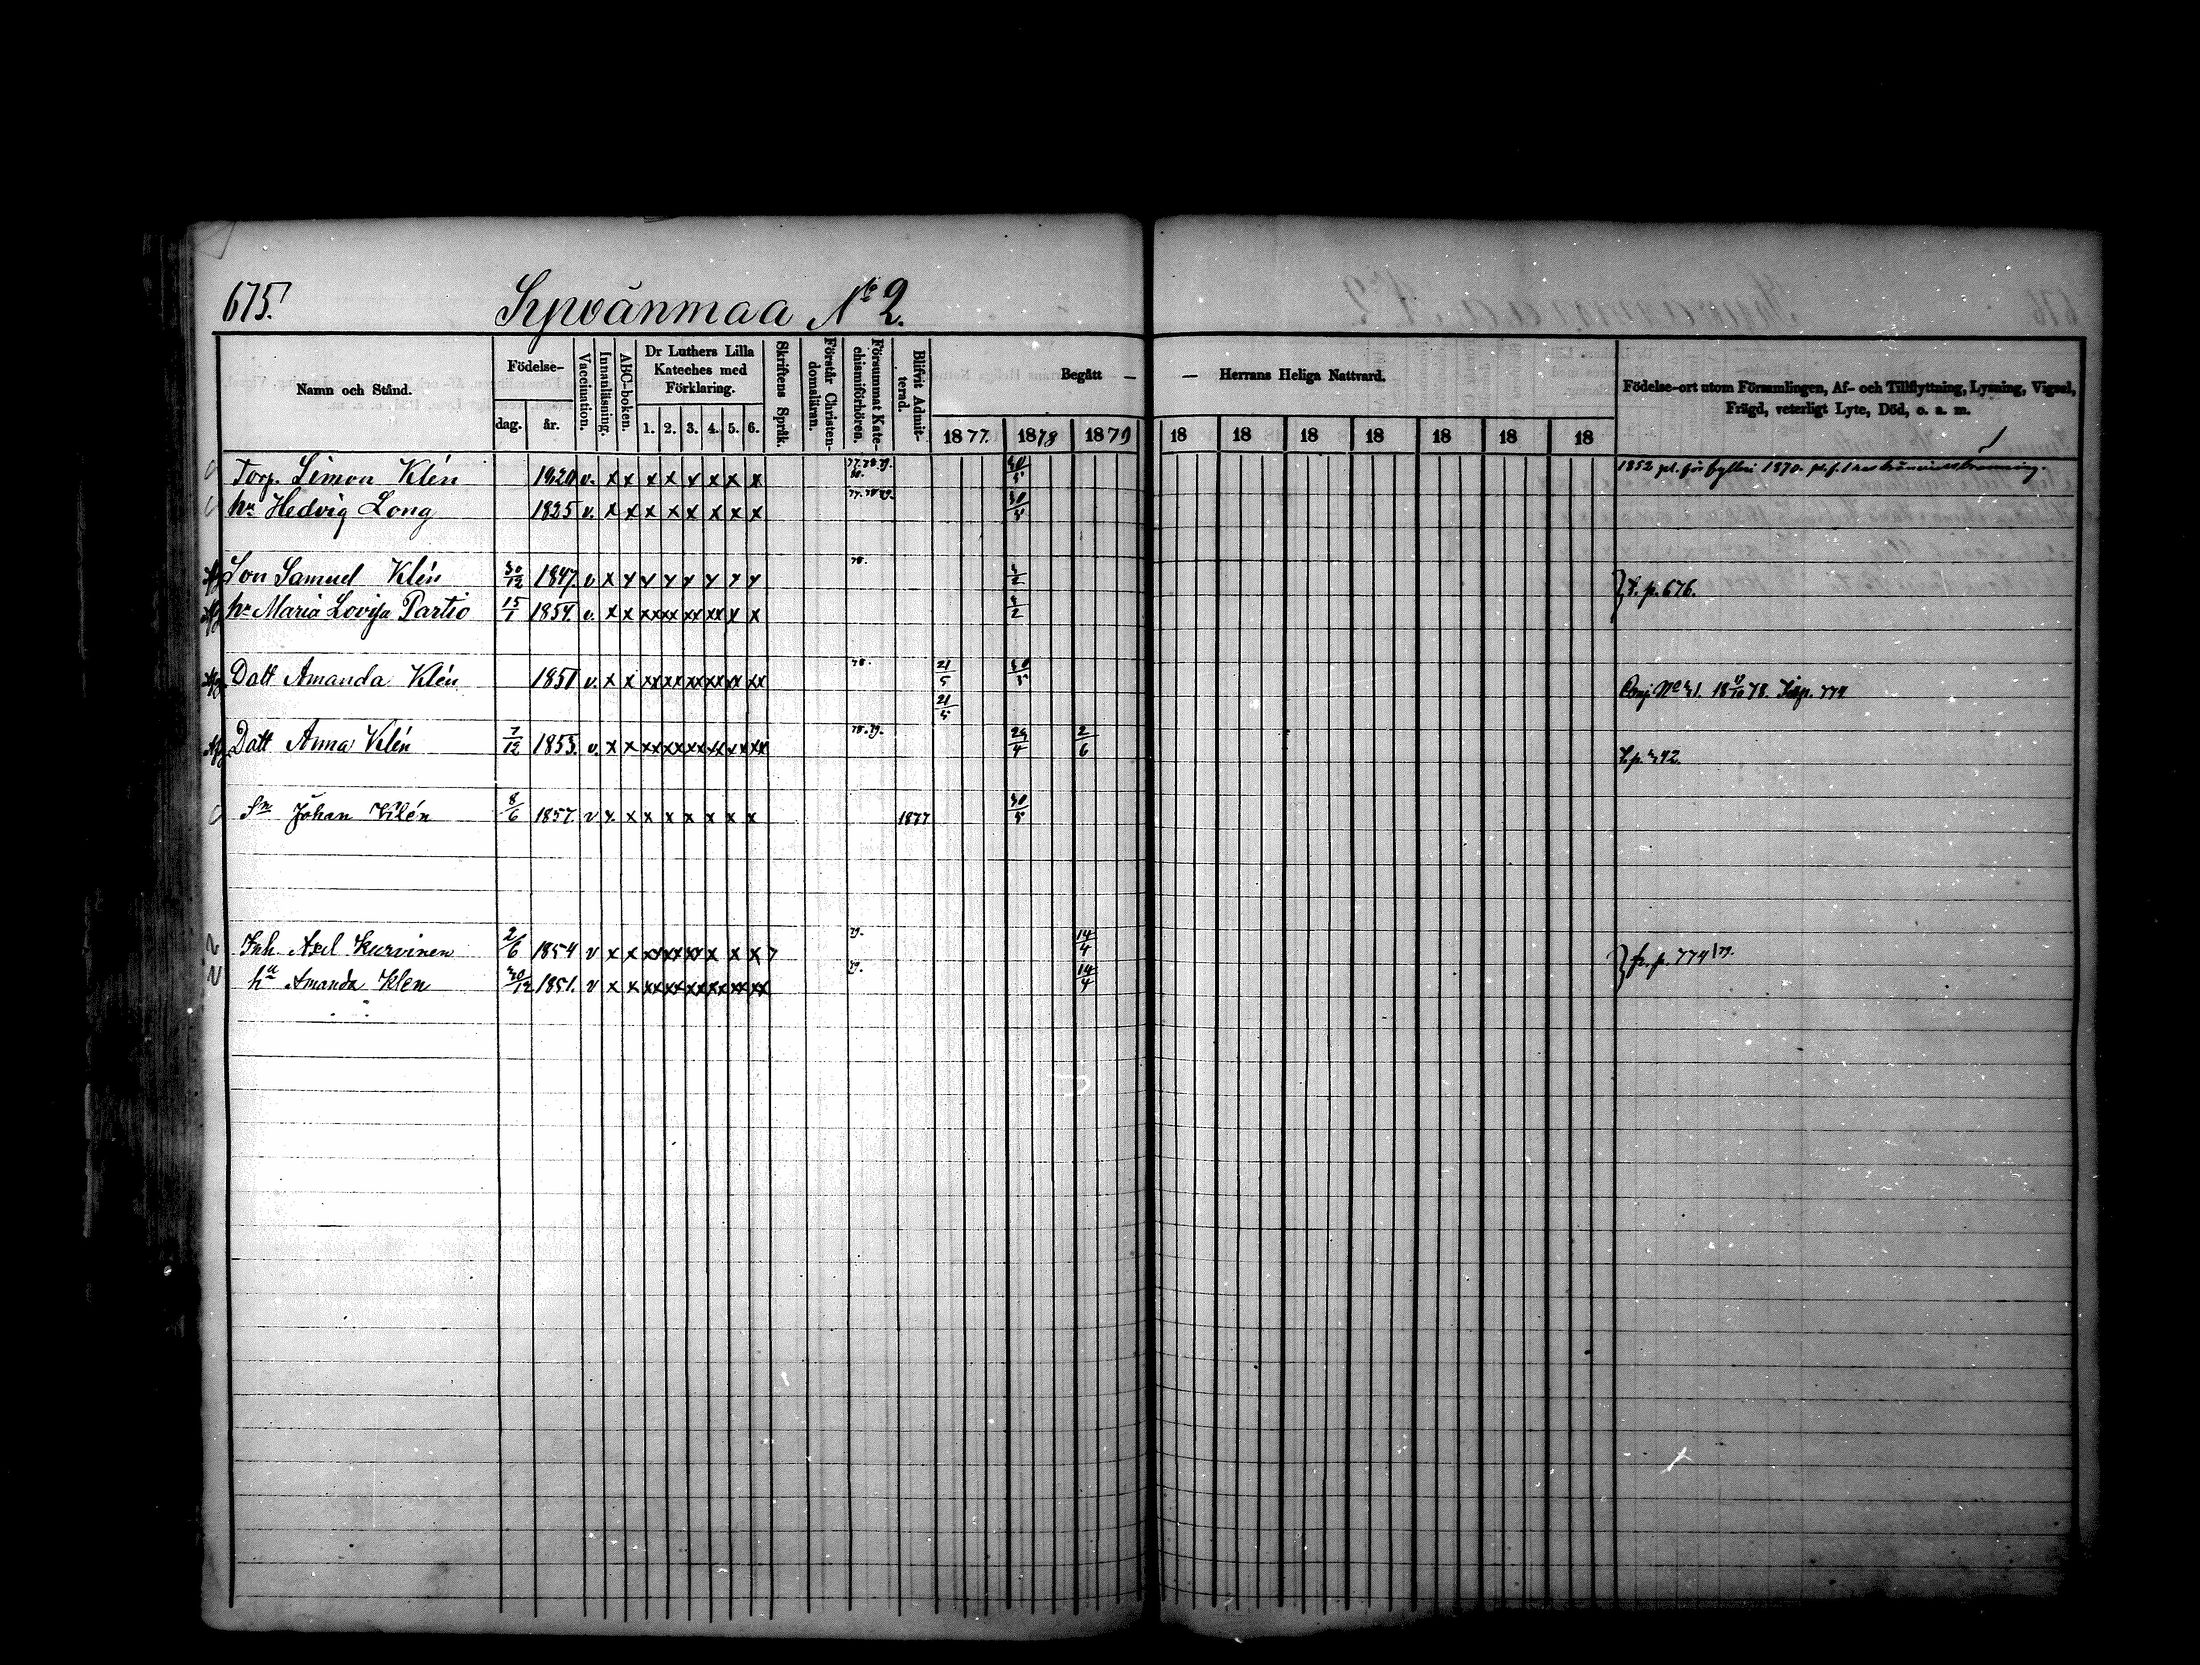 675.
Sypvänmaa No 2.
Namn och Stånd.
Födelse-
dag. år.
Vaccination.
Innanläsning.
ABC-boken.
Dr Luthers Lilla Kateches med Förklaring.
1. 2. 3. 4. 5. 6.
Skriftens Språk.
Förstår Christendomsläran.
Försummat Katechismiförhören.
Blifvit Admitterad.
Begått — — Herrans Heliga Nattvard.
1877. 1878 1879 18 18 18 18 18 18 18
Födelse-ort utom Församlingen, Af- och Tillflyttning, Lysning, Vigsel,
Frägd, veterligt Lyte, Död, o. a. m.
Torp. Simon Klén 1820 v. x x x x x x x x 77.78.79. 30/5 1852 pl. för fylleri 1870
hu Hedvig Long 1825 v. x x x x x x x x 77.78.79. 30/5
Son Samuel Klén 30/12 1847. v x x x x x x x x 78. 3/2
hu Maria Lovisa Partio 15/1 1854. v. x x xx xx xx xx x x 3/2 } T. p. 676.
Dott Amanda Klén 1851 v. x x xx xx xx xx xx xx 78. 21/5 30/5
21/5
Dott Anna Klén 7/12 1853. v. x x xx xx xx xx xx xx 78.79. 29/4 2/6
Sn Johan Klén 8/6 1857. v x x x x x x x x 1877 30/5
Inh Axel Kurvinen 2/6 1854 v x x xx xx xx x x x 7 79. 14/4
ha Amanda Klén 30/12 1851. v x x xx xx xx xx xx xx 79. 14/4 } fr. p. 774 79.